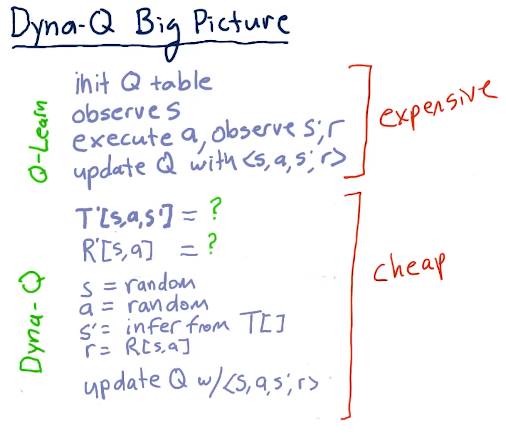 Dyna-Q Big Picture
Q-Learn
init Q table
observe s
execute a, observe s', r
update Q with <s, a, s', r>
expensive
Dyna-Q
T'[s,a,s'] = ?
R'[s,a] = ?
s = random
a = random
s' = infer from T[]
r = R[s,a]
update Q w/ <s, a, s', r>
cheap